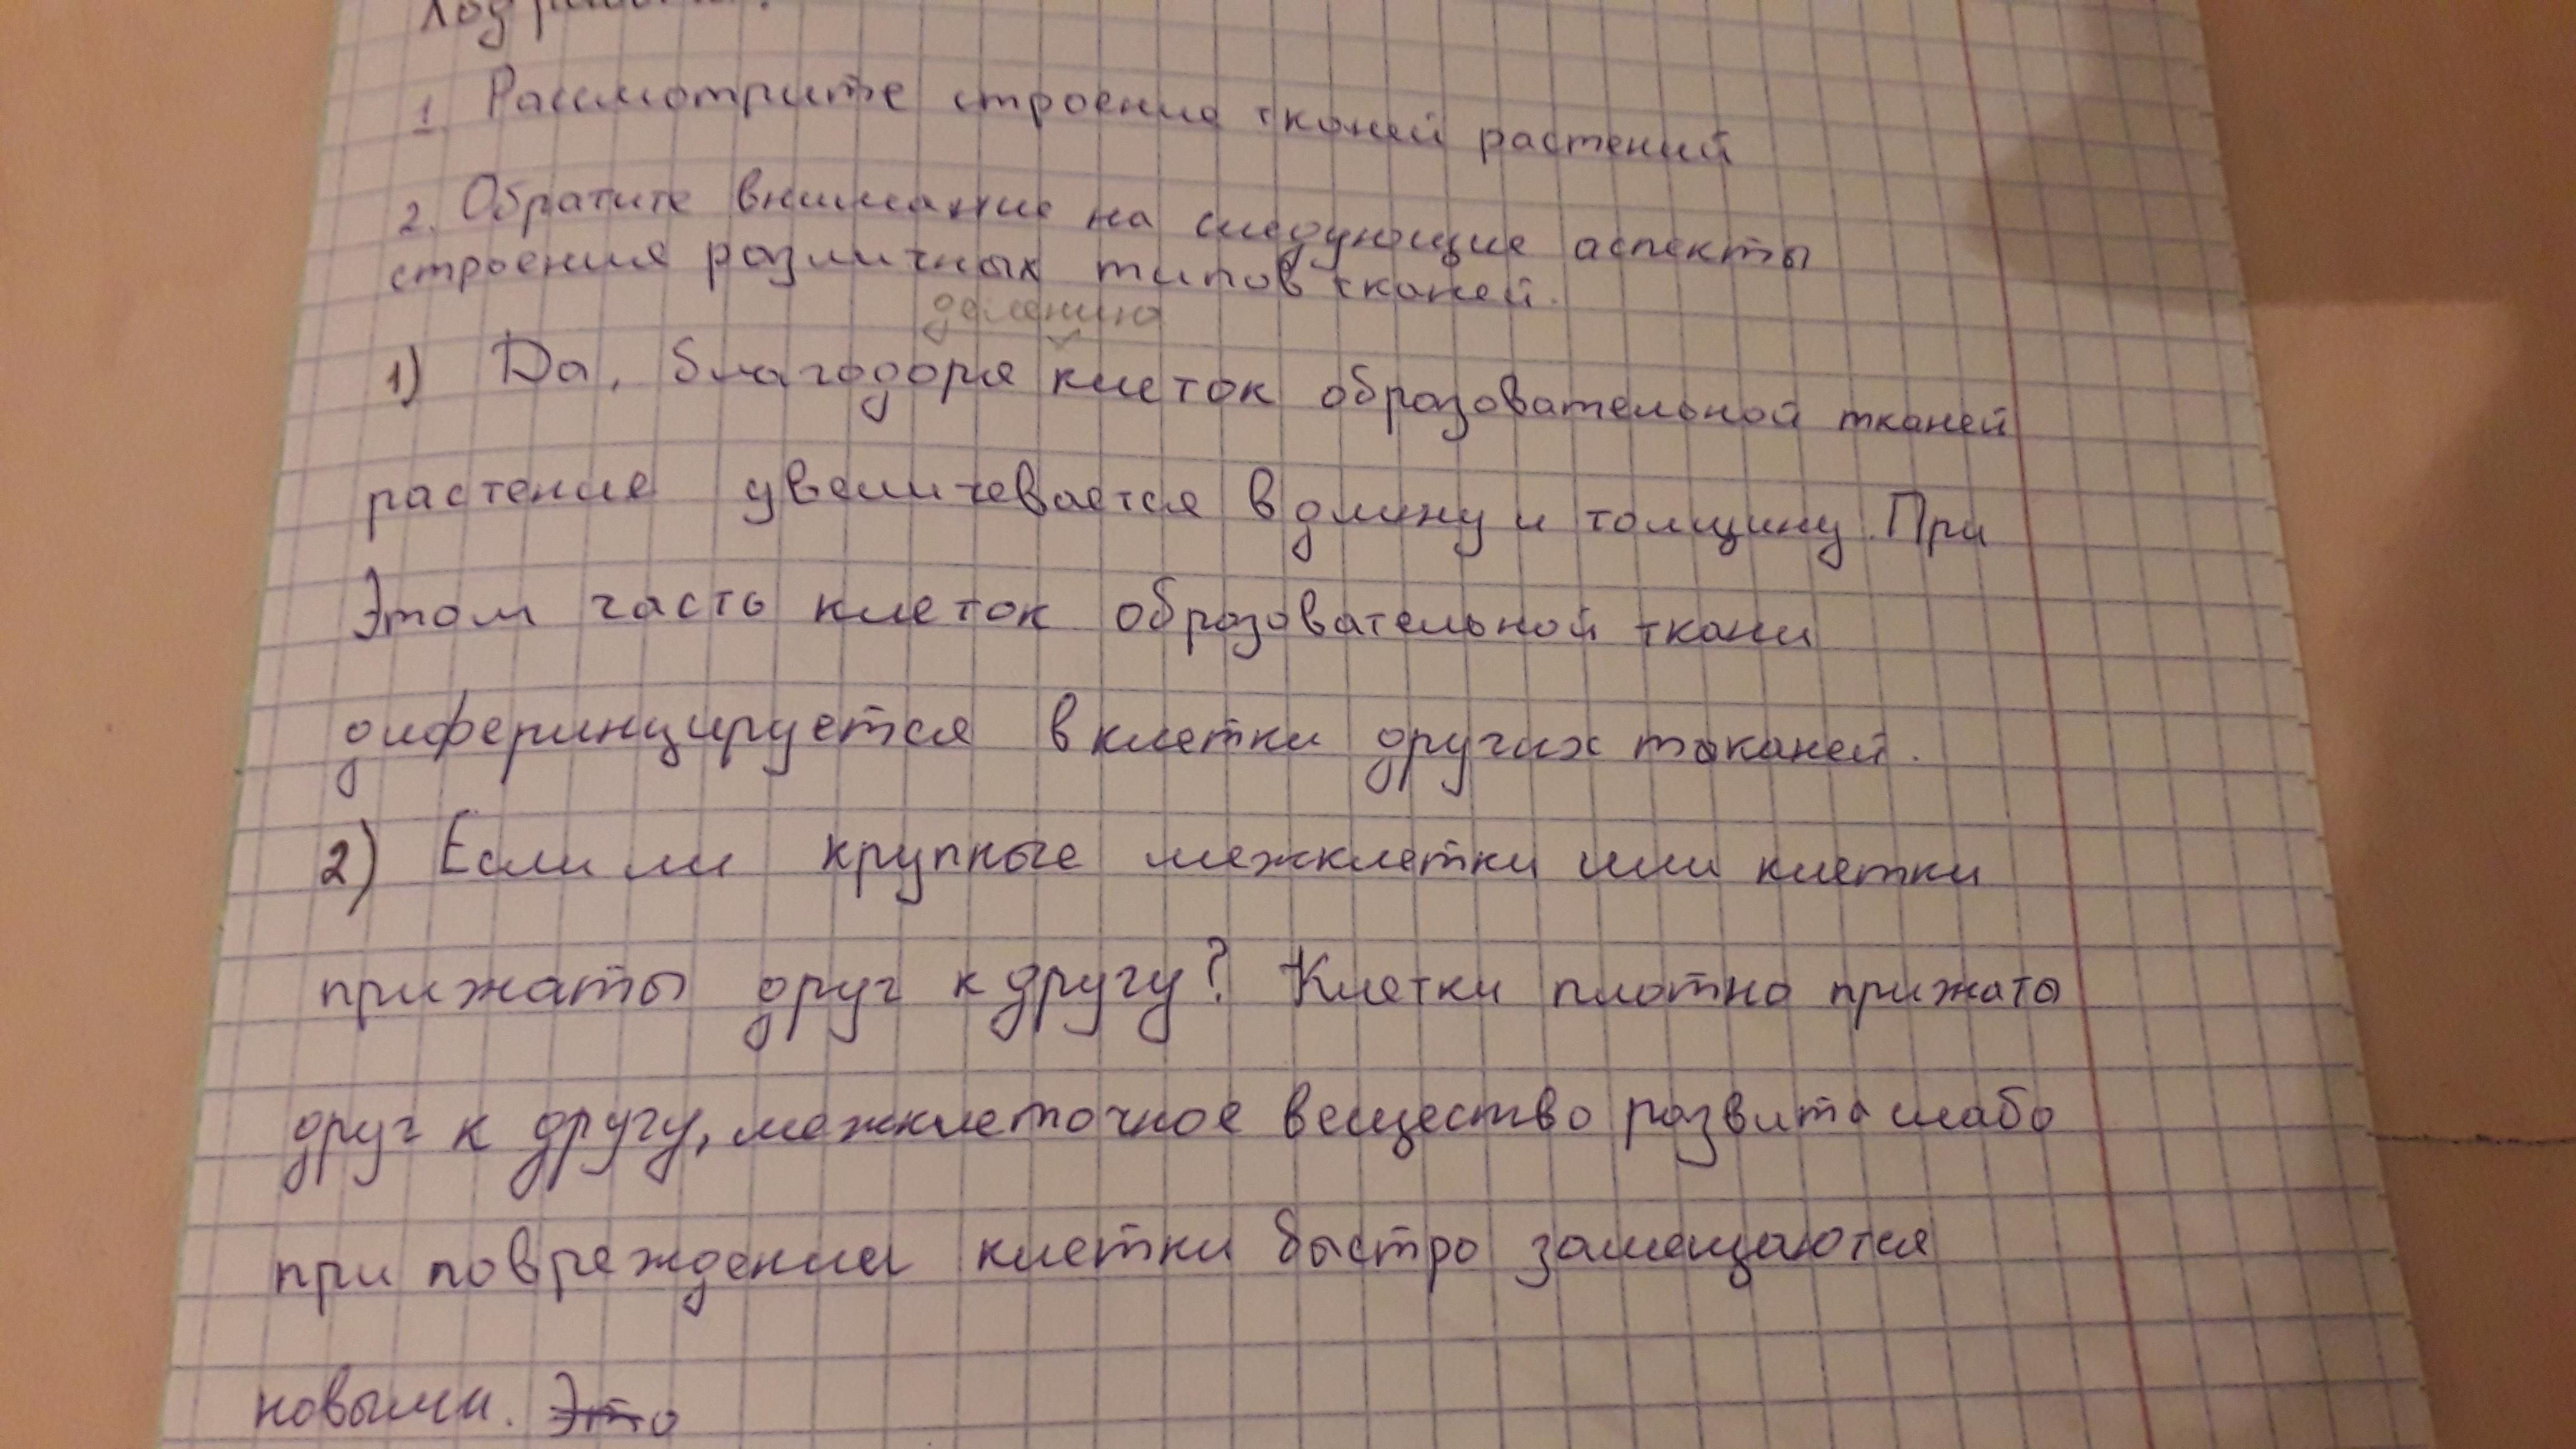 Ход работы:
1. Рассмотрите строение тканей растений
2. Обратите внимание на следующие аспекты
строения различных типов тканей.
делению
1) Да, благодоря клеток образовательной тканей
растение увеличевается в длину и толщину. При
Этом часть клеток образовательной ткани
диферинцируется в клетки других тканей.
2) Если ли крупные межклетки или клетки
прижаты друг к другу? Клетки плотно прижаты
друг к другу, межклеточное вещество развито слабо
при повреждении клетки быстро замещаются
новыми. Это